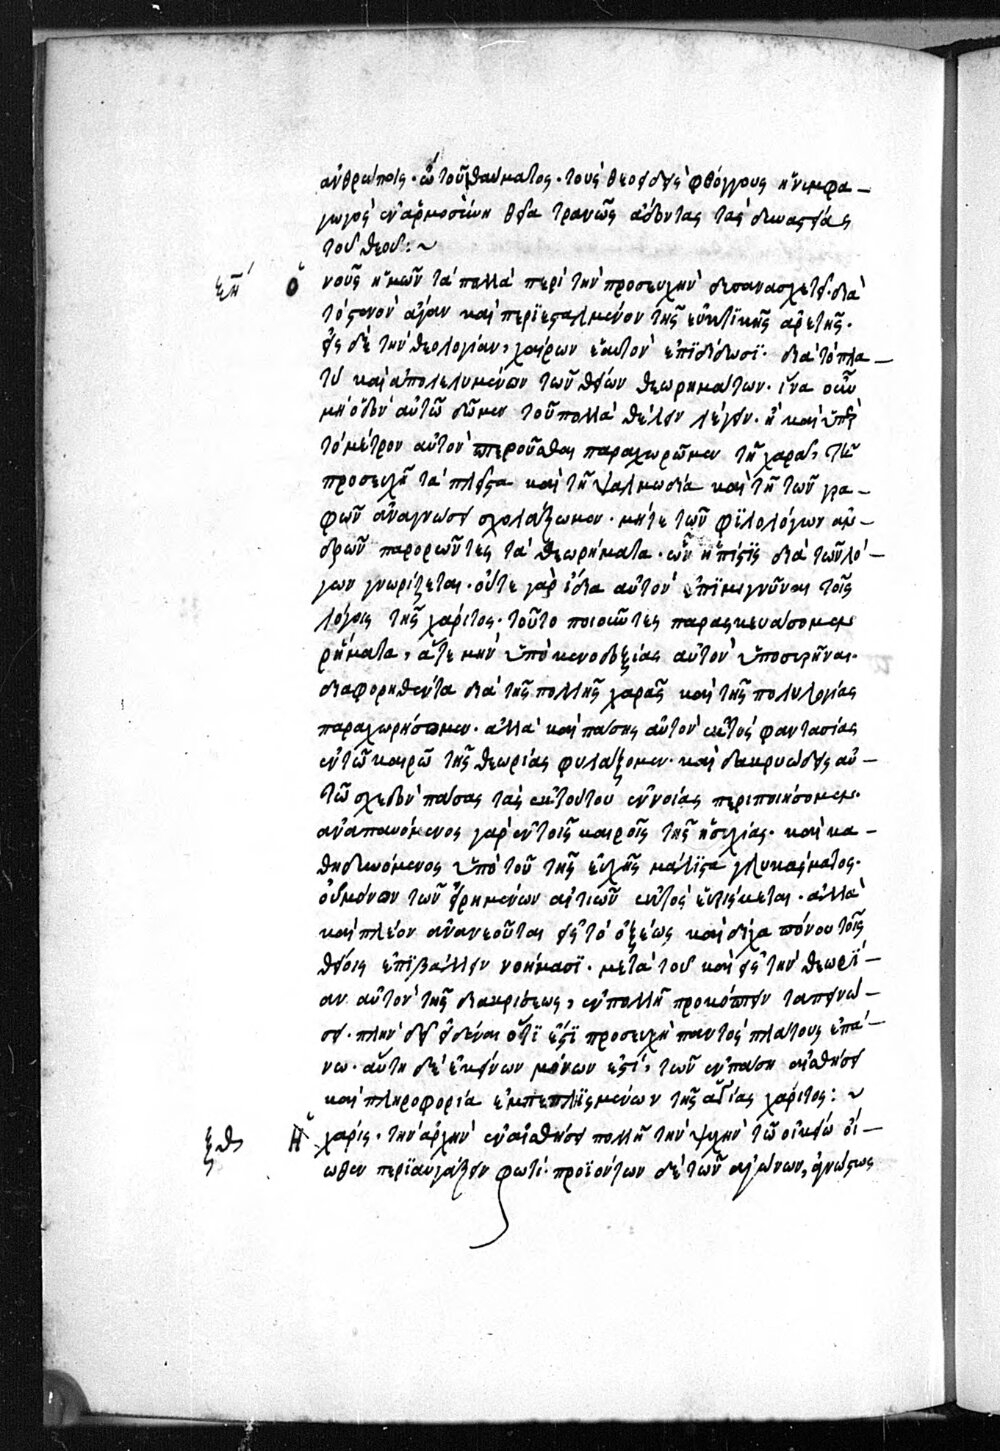 ἀνθρώποις · ὢ τοῦ θαύματος · τοὺς θεοειδεῖς φθόγγους ἡ νυμφα –
γωγὸς ἐναρμονίων θεῖα τρανῶς ἄδοντας τὰς δυναστείας
τοῦ θεοῦ : ~
ξη΄ Ὁ νοῦς ἡμῶν τὰ πολλὰ περὶ τὴν προσευχὴν δυσανασχετεῖ · διὰ
τὸ στενὸν ἄγαν καὶ περιεσταλμένον τῆς εὐκτικῆς ἀρετῆς ·
εἰς δὲ τὴν θεολογίαν, χαίρων ἑαυτὸν ἐπιδίδωσι · διὰ τὸ πλα –
τὺ καὶ ἀπολελυμένον τῶν θείων θεωρημάτων · ἵνα οὖν
μὴ ὁδὸν αὐτῷ δῶμεν τοῦ πολλὰ θέλειν λέγειν · ἢ καὶ ὑπὲρ
τὸ μέτρον αὐτὸν πτεροῦσθαι παραχωρῶμεν τῇ χαρᾷ, τῇ
προσευχῇ τὰ πλεῖστα καὶ τῇ ψαλμωδίᾳ καὶ τῇ τῶν γρα –
φῶν ἀναγνώσει σχολάζωμεν · μήτε τῶν φιλολόγων ἀν –
δρῶν παρορῶντες τὰ θεωρήματα · ὧν ἡ πίστις διὰ τῶν λό –
γων γνωρίζεται · οὔτε γὰρ ἴδια αὐτὸν ἐπιμιγνῦναι τοῖς
λόγοις τῆς χάριτος · τοῦτο ποιοῦντες παρασκευάσομεν
ῥήματα, οὔτε μὴν ὑπὸ κενοδοξίας αὐτὸν ὑποσυρῆναι ·
διαφορηθέντα διὰ τῆς πολλῆς χαρᾶς καὶ τῆς πολυλογίας
παραχωρήσωμεν · ἀλλὰ καὶ πάσης αὐτὸν ἐκτὸς φαντασίας
ἐν τῷ καιρῷ τῆς θεωρίας φυλάξομεν · καὶ δακρυώδεις αὐ –
τῷ σχεδὸν πάσας τὰς ἐκ τούτου ἐννοίας περιποιήσομεν ·
ἀναπαυόμενος γὰρ ἐν τοῖς καιροῖς τῆς ἡσυχίας · καὶ κα –
θηδυνόμενος ὑπὸ τοῦ τῆς εὐχῆς μάλιστα γλυκάσματος ·
οὐ μόνον τῶν εἰρημένων αἰτιῶν ἐκτὸς εὑρίσκεται · ἀλλὰ
καὶ πλέον ἀνανεοῦται εἰς τὸ ὀξέως καὶ δίχα πόνου τοῖς
θείοις ἐπιβάλλειν νοήμασι · μετὰ τοῦ καὶ εἰς τὴν θεωρί –
αν αὐτὸν τῆς διακρίσεως, ἐν πολλῇ προκόπτειν ταπεινώ –
σει · πλὴν δεῖ εἰδέναι ὅτι ἐστὶ προσευχὴ παντὸς πλάτους ἐπά –
νω · αὕτη δὲ ἐκείνων μόνων ἐστί, τῶν ἐν πάσῃ αἰσθήσει
καὶ πληροφορίᾳ ἐμπεπλησμένων τῆς ἁγίας χάριτος : ~
ξθ Ἡ χάρις · τὴν ἀρχὴν ἐν αἰσθήσει πολλῇ τὴν ψυχὴν τῷ οἰκείῳ εἴ –
ωθεν περιαυγάζειν φωτί · προϊόντων δὲ τῶν ἀγώνων, ἀγνώστως